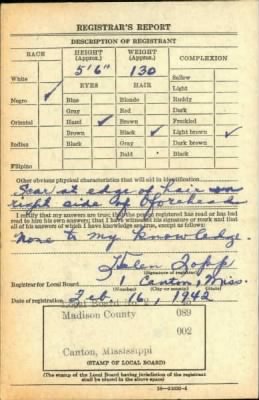 REGISTRAR'S REPORT
DESCRIPTION OF REGISTRANT
RACE HEIGHT (Approx.) WEIGHT (Approx.) COMPLEXION
5'6" 130
White Sallow
EYES HAIR Light
Negro ✓ Blue Blonde Ruddy
Gray Red Dark
Oriental Hazel ✓ Brown Freckled
Brown Black ✓ Light brown ✓
Indian Black Gray Dark brown
Bald Black
Filipino
Other obvious physical characteristics that will aid in identification
Scar at edge of hair on
right side of forehead
I certify that my answers are true; that the person registered has read or has had
read to him his own answers; that I have witnessed his signature or mark and that
all of his answers of which I have knowledge are true, except as follows:
None to my knowledge.
Helen Zopp
Registrar for Local Board Canton, Miss.
(Number) (City or county) (State)
Date of registration Feb. 16, 1942
Local Board No.
Madison County 089
002
Canton, Mississippi
(STAMP OF LOCAL BOARD)
(The stamp of the Local Board having jurisdiction of the registrant
shall be placed in the above space)